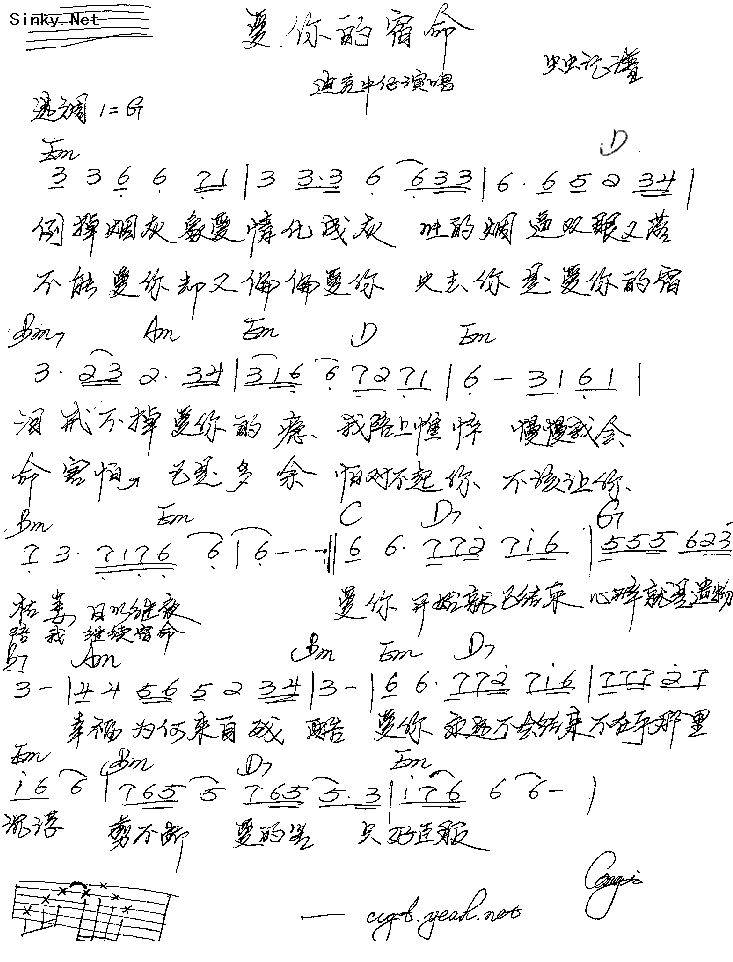 Sinky.Net
爱你的宿命
迪克牛仔演唱
虫虫记谱
选调 1=G
Em D
3 3 6 6 71 | 3 3·3 6 6 33 | 6· 6 5 2 34 |
倒掉烟灰 象爱情化成灰 吐的烟 逼双眼又落
不能爱你却又偏偏爱你 失去你是爱你的宿
Bm7 Am Em D Em
3· 23 2· 34 | 316 6 7271 | 6 – 31 61 |
泪 戒不掉爱你的瘾、我陪上憔悴 慢慢我会
命 害怕 已是多余 怕对不起你、不该让你、
Bm Em C D7 G7
7 3· 7176 6 | 6 – – – :|| 6 6· 772 716 | 555 623
枯萎 日以继夜 爱你 开始就已结束 心碎就是遗物
陪我 继续宿命
B7 Am Bm Em D7
3 – | 44 56 5 2 34 | 3 – | 6 6· 772 716 | 777 27
幸福为何来自残 酷 爱你 永远不会结束不在乎那里
Em Bm D7 Em
i6 6 | 765 5 765 5·3 | i76 6 6 – |
沉浮 剪不断 爱的苦 只好臣服
— cygb.yeah.net